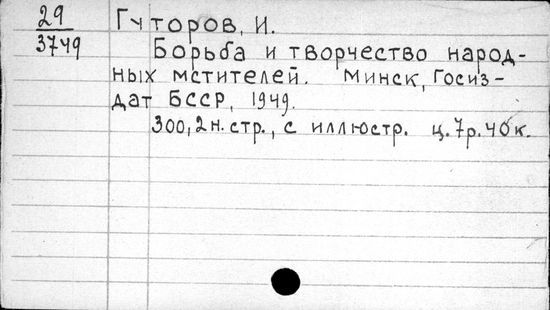 29
3749
Гуторов, И.
Борьба и творчество народ-
ных мстителей. Минск, Госиз-
дат БССР, 1949.
300, 2 н. стр., с иллюстр. ц. 7 р. 40 к.